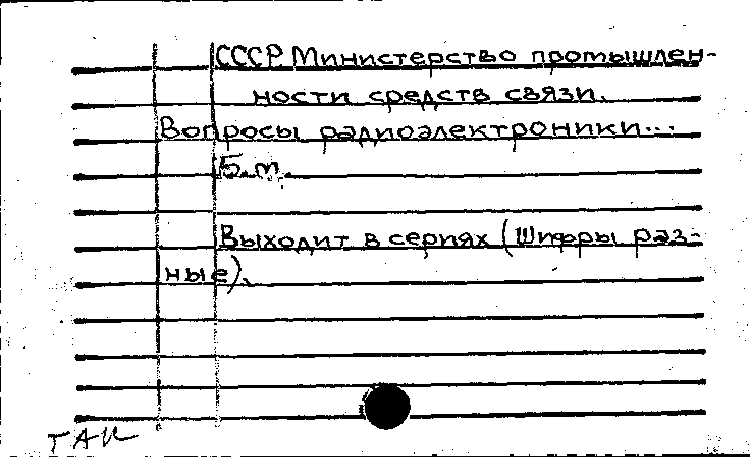 СССР Министерство промышлен-
ности средств связи.
Вопросы радиоэлектроники...
Б.м.
Выходит в сериях (Шифры раз-
ные).